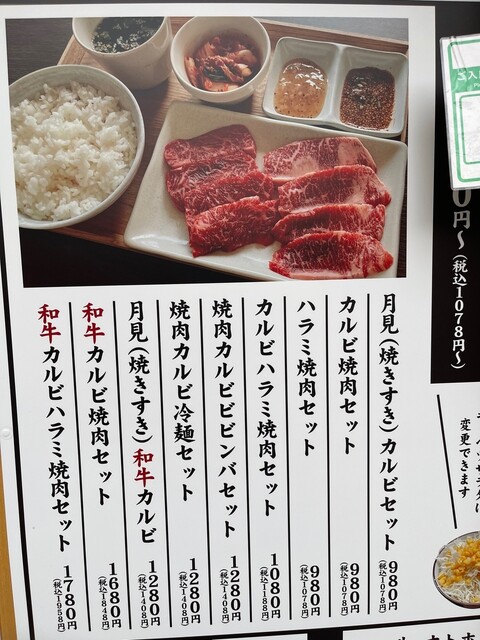 月見(焼きすき)カルビセット 980円
(税込1078円)
カルビ焼肉セット 980円
(税込1078円)
ハラミ焼肉セット 980円
(税込1078円)
カルビハラミ焼肉セット 1080円
(税込1188円)
焼肉カルビビビンバセット 1280円
(税込1408円)
焼肉カルビ冷麺セット 1280円
(税込1408円)
月見(焼きすき)和牛カルビ 1280円
(税込1408円)
和牛カルビ焼肉セット 1680円
(税込1848円)
和牛カルビハラミ焼肉セット 1780円
(税込1958円)
0円〜
(税込1078円〜)
変更できます